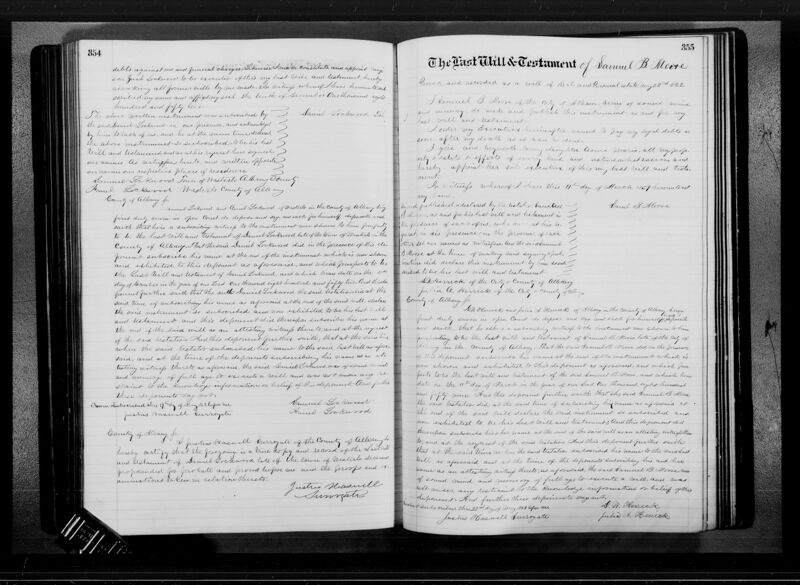 354
debts against me and funeral charges. Likewise I make constitute and appoint my
son Jirah Lockwood to be executor of this my last Will and testament hereby
revoking all former wills by me made. In witness whereof I have hereunto sub
scribed my name and affixed my seal the tenth of December One thousand eight
hundred and fifty two
The above written instrument was subscribed by
the said Daniel Lockwood in our presence and acknowledged
by him to each of us, and he at the same time declared
the above instrument so subscribed to be his last
Will and testament and we at his request have signed
our names as witnesses hereto and written opposite
our names our respective places of residence
Daniel Lockwood L.S.
Samuel Lockwood Town of Westerlo Albany County
Daniel Lockwood Westerlo County of Albany
County of Albany ss
Samuel Lockwood and Daniel Lockwood of Westerlo in the county of Albany being
first duly sworn in open Court do depose and say each for himself deposeth and
saith that he is a subscribing witness to the instrument now shown to him purporting
to be the last Will and testament of Daniel Lockwood late of the town of Westerlo in the
County of Albany. That the said Daniel Lockwood did in the presence of this de
ponent subscribe his name at the end of the instrument which is now shown
and exhibited to this deponent as aforesaid and which purports to be
the Last Will and testament of Daniel Lockwood, and which bears date on the
day of December in the year of our Lord One thousand eight hundred and fifty two. And this de
ponent further saith that the said Daniel Lockwood the said testator did at the
said time of subscribing his name as aforesaid at the end of the said will, declare
the said instrument so subscribed and now exhibited to be his last will
and testament and this deponent did thereupon subscribe his name at
the end of the said will as an attesting witness thereto and at the request
of the said testator. And this deponent further saith, that at the said time
when the said testator subscribed his name to the said last will as afore
said, and at the time of the deponent subscribing his name as an at
testing witness thereto as aforesaid the said Daniel Lockwood was of sound mind
and memory of full age to execute a will and was not under any re
straint to the knowledge information or belief of this deponent And further
these deponents say not.
Sworn subscribed this day of May 1859 before me
Justus Haswell Surrogate
Samuel Lockwood
Daniel Lockwood
County of Albany ss
I Justus Haswell Surrogate of the County of Albany do
hereby certify that the foregoing is a true copy and record of the Last will
and testament of Daniel Lockwood late of the town of Westerlo deceased
propounded for probate and proved before me and the proofs and ex
aminations taken in relation thereto.
Justus Haswell
Surrogate
355
The Last Will & Testament of Samuel B Moore
Proved and recorded as a will of Real and Personal estate May 23rd
I Samuel B. Moore of the City of Albany being of sound mind
and memory do make and publish this instrument as and for my
last will and testament.
I order my Executrix hereinafter named to pay my legal debts as
soon after my death as it can be done.
I give and bequeath to my daughter all my prop
erty estate & effects of every kind and nature whatsoever and
hereby appoint her sole executrix of this my last will and testa
ment.
In witness whereof I have this 11th day of March 1859 hereunto set
my hand
Saml B. Moore
Signed published & declared by the testator Samuel
B. Moore, as and for his last will and testament in
the presence of each of us, who have at his re
quest in his presence in the presence of each
other set our names as witnesses and the said Samuel
B Moore at the time of making and signing & pub
lication did declare this instrument by us sub
scribed to be his last will and testament
S. W. Herrick of the City & County of Albany
Julia A. Herrick of the City & County of Albany
County of Albany ss
S. W. Herrick and Julia A Herrick of Albany in the county of Albany being
first duly sworn in open Court do depose and say and each for himself deposeth
and saith, that he is a subscribing witness to the instrument now shown to him
purporting to be the last will and testament of Samuel B. Moore late of the city of
Albany in the County of Albany. That the said Samuel B. Moore did in the presence
of this deponent subscribe his name at the end of the instrument which is
now shown and exhibited to this deponent as aforesaid, and which pur
ports to be the last will and testament of the said Samuel B. Moore, and which bears
date on the 11th day of March in the year of our Lord One thousand eight hundred
and fifty nine. And this deponent further saith that the said Samuel B. Moore
the said testator did, at the said time of subscribing his name as aforesaid at
the end of the said will declare the said instrument so subscribed and
now exhibited to be his last Will and testament and this deponent did
thereupon subscribe his name at the end of the said will as an attesting witness there
to, and at the request of the said testator. And this deponent further saith
that at the said time when the said testator subscribed his name to the said last
will as aforesaid and at the time of the deponent subscribing his and her
name as an attesting witness thereto as aforesaid, the said Samuel B. Moore was
of sound mind and memory of full age to execute a will and was
not under any restraint to the knowledge information or belief of this
deponent. And further these deponents say not.
Sworn and subscribed this 23rd day of May 1859 before me
Justus Haswell Surrogate
S. W. Herrick
Julia A. Herrick